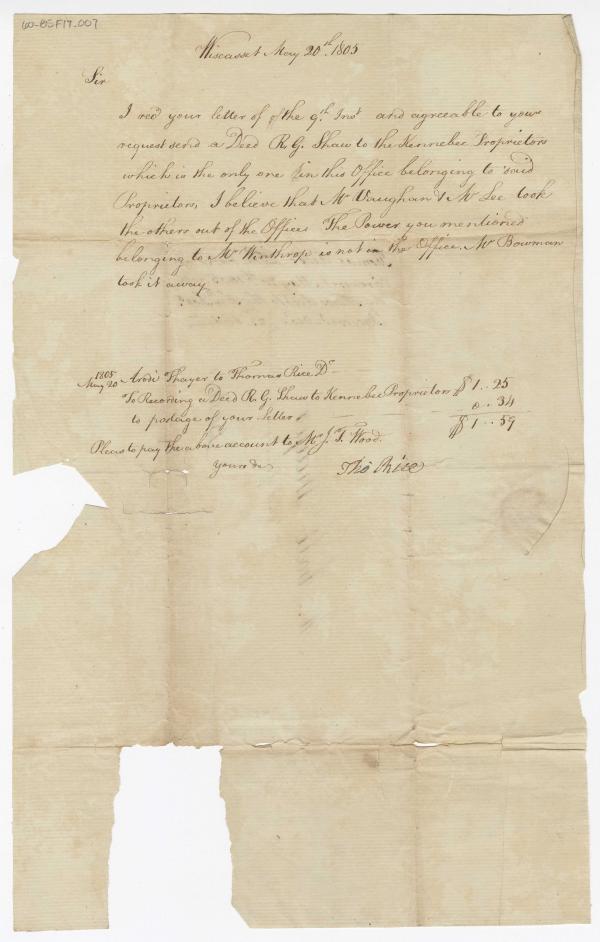 60-BSF17-007
Wiscasset May 20th. 1805
Sir
I recd your letter of of the 9th Inst and agreeable to your
request send a Deed R. G. Shaw to the Kennebec Proprietors
which is the only one in this Office belonging to said
Proprietors, I believe that Mr Vaughan & Mr Lee took
the others out of the Office The Power you mentioned
belonging to Mr Winthrop is not in the Office. Mr Bowman
took it away
1805
May 20 Arodi Thayer to Thomas Rice Dr
To Recording a Deed R. G. Shaw to Kennebec Proprietors $1..25
to postage of your Letter 0..34
$1..59
Pleas to pay the above account to Mr J. T. Wood.
yours &c
Tho Rice